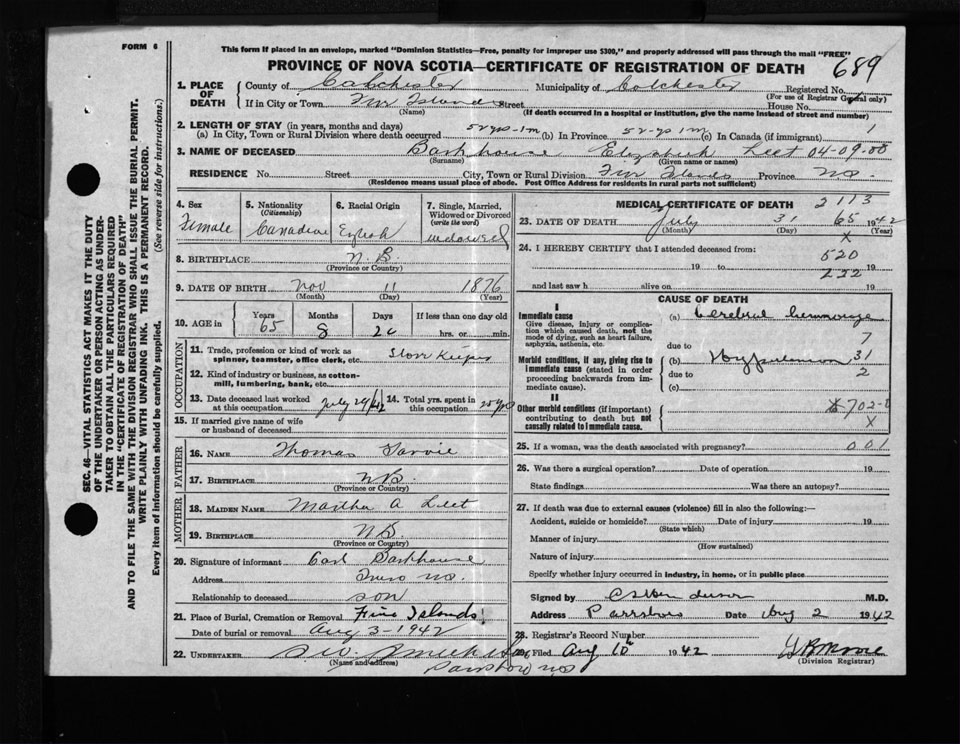 FORM 6
This form if placed in an envelope, marked "Dominion Statistics—Free, penalty for improper use $300," and properly addressed will pass through the mail "FREE"
PROVINCE OF NOVA SCOTIA—CERTIFICATE OF REGISTRATION OF DEATH 689
1. PLACE OF DEATH County of Colchester Municipality of Colchester Registered No.
(For use of Registrar General only)
If in City or Town Five Islands Street House No.
(Name) (If death occurred in a hospital or institution, give the name instead of street and number)
2. LENGTH OF STAY (in years, months and days)
(a) In City, Town or Rural Division where death occurred 52 yrs-1m (b) In Province 52-yrs 1m (c) In Canada (if immigrant)
3. NAME OF DECEASED Barkhouse Elizabeth Leet 04-09-00
(Surname) (Given name or names)
RESIDENCE No. Street City, Town or Rural Division Five Islands Province N.S.
(Residence means usual place of abode. Post Office Address for residents in rural parts not sufficient)
4. Sex Female
5. Nationality (Citizenship) Canadian
6. Racial Origin English
7. Single, Married, Widowed or Divorced (write the word) widowed
8. BIRTHPLACE N.B
(Province or Country)
9. DATE OF BIRTH Nov 11 1876
(Month) (Day) (Year)
10. AGE in Years 65 Months 8 Days 20 If less than one day old hrs. or min.
OCCUPATION
11. Trade, profession or kind of work as spinner, teamster, office clerk, etc. Store Keeper
12. Kind of industry or business, as cotton-mill, lumbering, bank, etc.
13. Date deceased last worked at this occupation July 29/42 14. Total yrs. spent in this occupation 25 yrs
15. If married give name of wife or husband of deceased
FATHER
16. NAME Thomas
17. BIRTHPLACE N.B.
(Province or Country)
MOTHER
18. MAIDEN NAME Martha A Leet
19. BIRTHPLACE N.B.
(Province or Country)
20. Signature of informant Carl Barkhouse
Address Truro N.S.
Relationship to deceased son
21. Place of Burial, Cremation or Removal Five Islands
Date of burial or removal Aug 3-1942
22. UNDERTAKER
(Name and address)
Parrsboro N.S
MEDICAL CERTIFICATE OF DEATH 2113
23. DATE OF DEATH July 31 65 1942
(Month) (Day) X (Year)
24. I HEREBY CERTIFY that I attended deceased from:
520
19 to 19
222
and last saw h alive on 19
CAUSE OF DEATH
I
Immediate cause
Give disease, injury or complication which caused death, not the mode of dying, such as heart failure, asphyxia, asthenia, etc.
(a) Cerebral hemorrhage
7
due to
Morbid conditions, if any, giving rise to immediate cause (stated in order proceeding backwards from immediate cause).
(b) Hypertension 31
due to 2
(c)
II
Other morbid conditions (if important) contributing to death but not causally related to immediate cause.
702-0
X
25. If a woman, was the death associated with pregnancy? 001
26. Was there a surgical operation? Date of operation 19
State findings Was there an autopsy?
27. If death was due to external causes (violence) fill in also the following:—
Accident, suicide or homicide? Date of injury 19
(State which)
Manner of injury
(How sustained)
Nature of injury
Specify whether injury occurred in industry, in home, or in public place
Signed by M.D.
Address Parrsboro Date Aug 2 1942
28. Registrar's Record Number
29. Filed Aug 10 1942
(Division Registrar)
SEC. 46—VITAL STATISTICS ACT MAKES IT THE DUTY
OF THE UNDERTAKER OR PERSON ACTING AS UNDER-
TAKER TO OBTAIN ALL THE PARTICULARS REQUIRED
IN THE "CERTIFICATE OF REGISTRATION OF DEATH"
AND TO FILE THE SAME WITH THE DIVISION REGISTRAR WHO SHALL ISSUE THE BURIAL PERMIT.
WRITE PLAINLY WITH UNFADING INK. THIS IS A PERMANENT RECORD.
Every item of information should be carefully supplied. (See reverse side for instructions.)